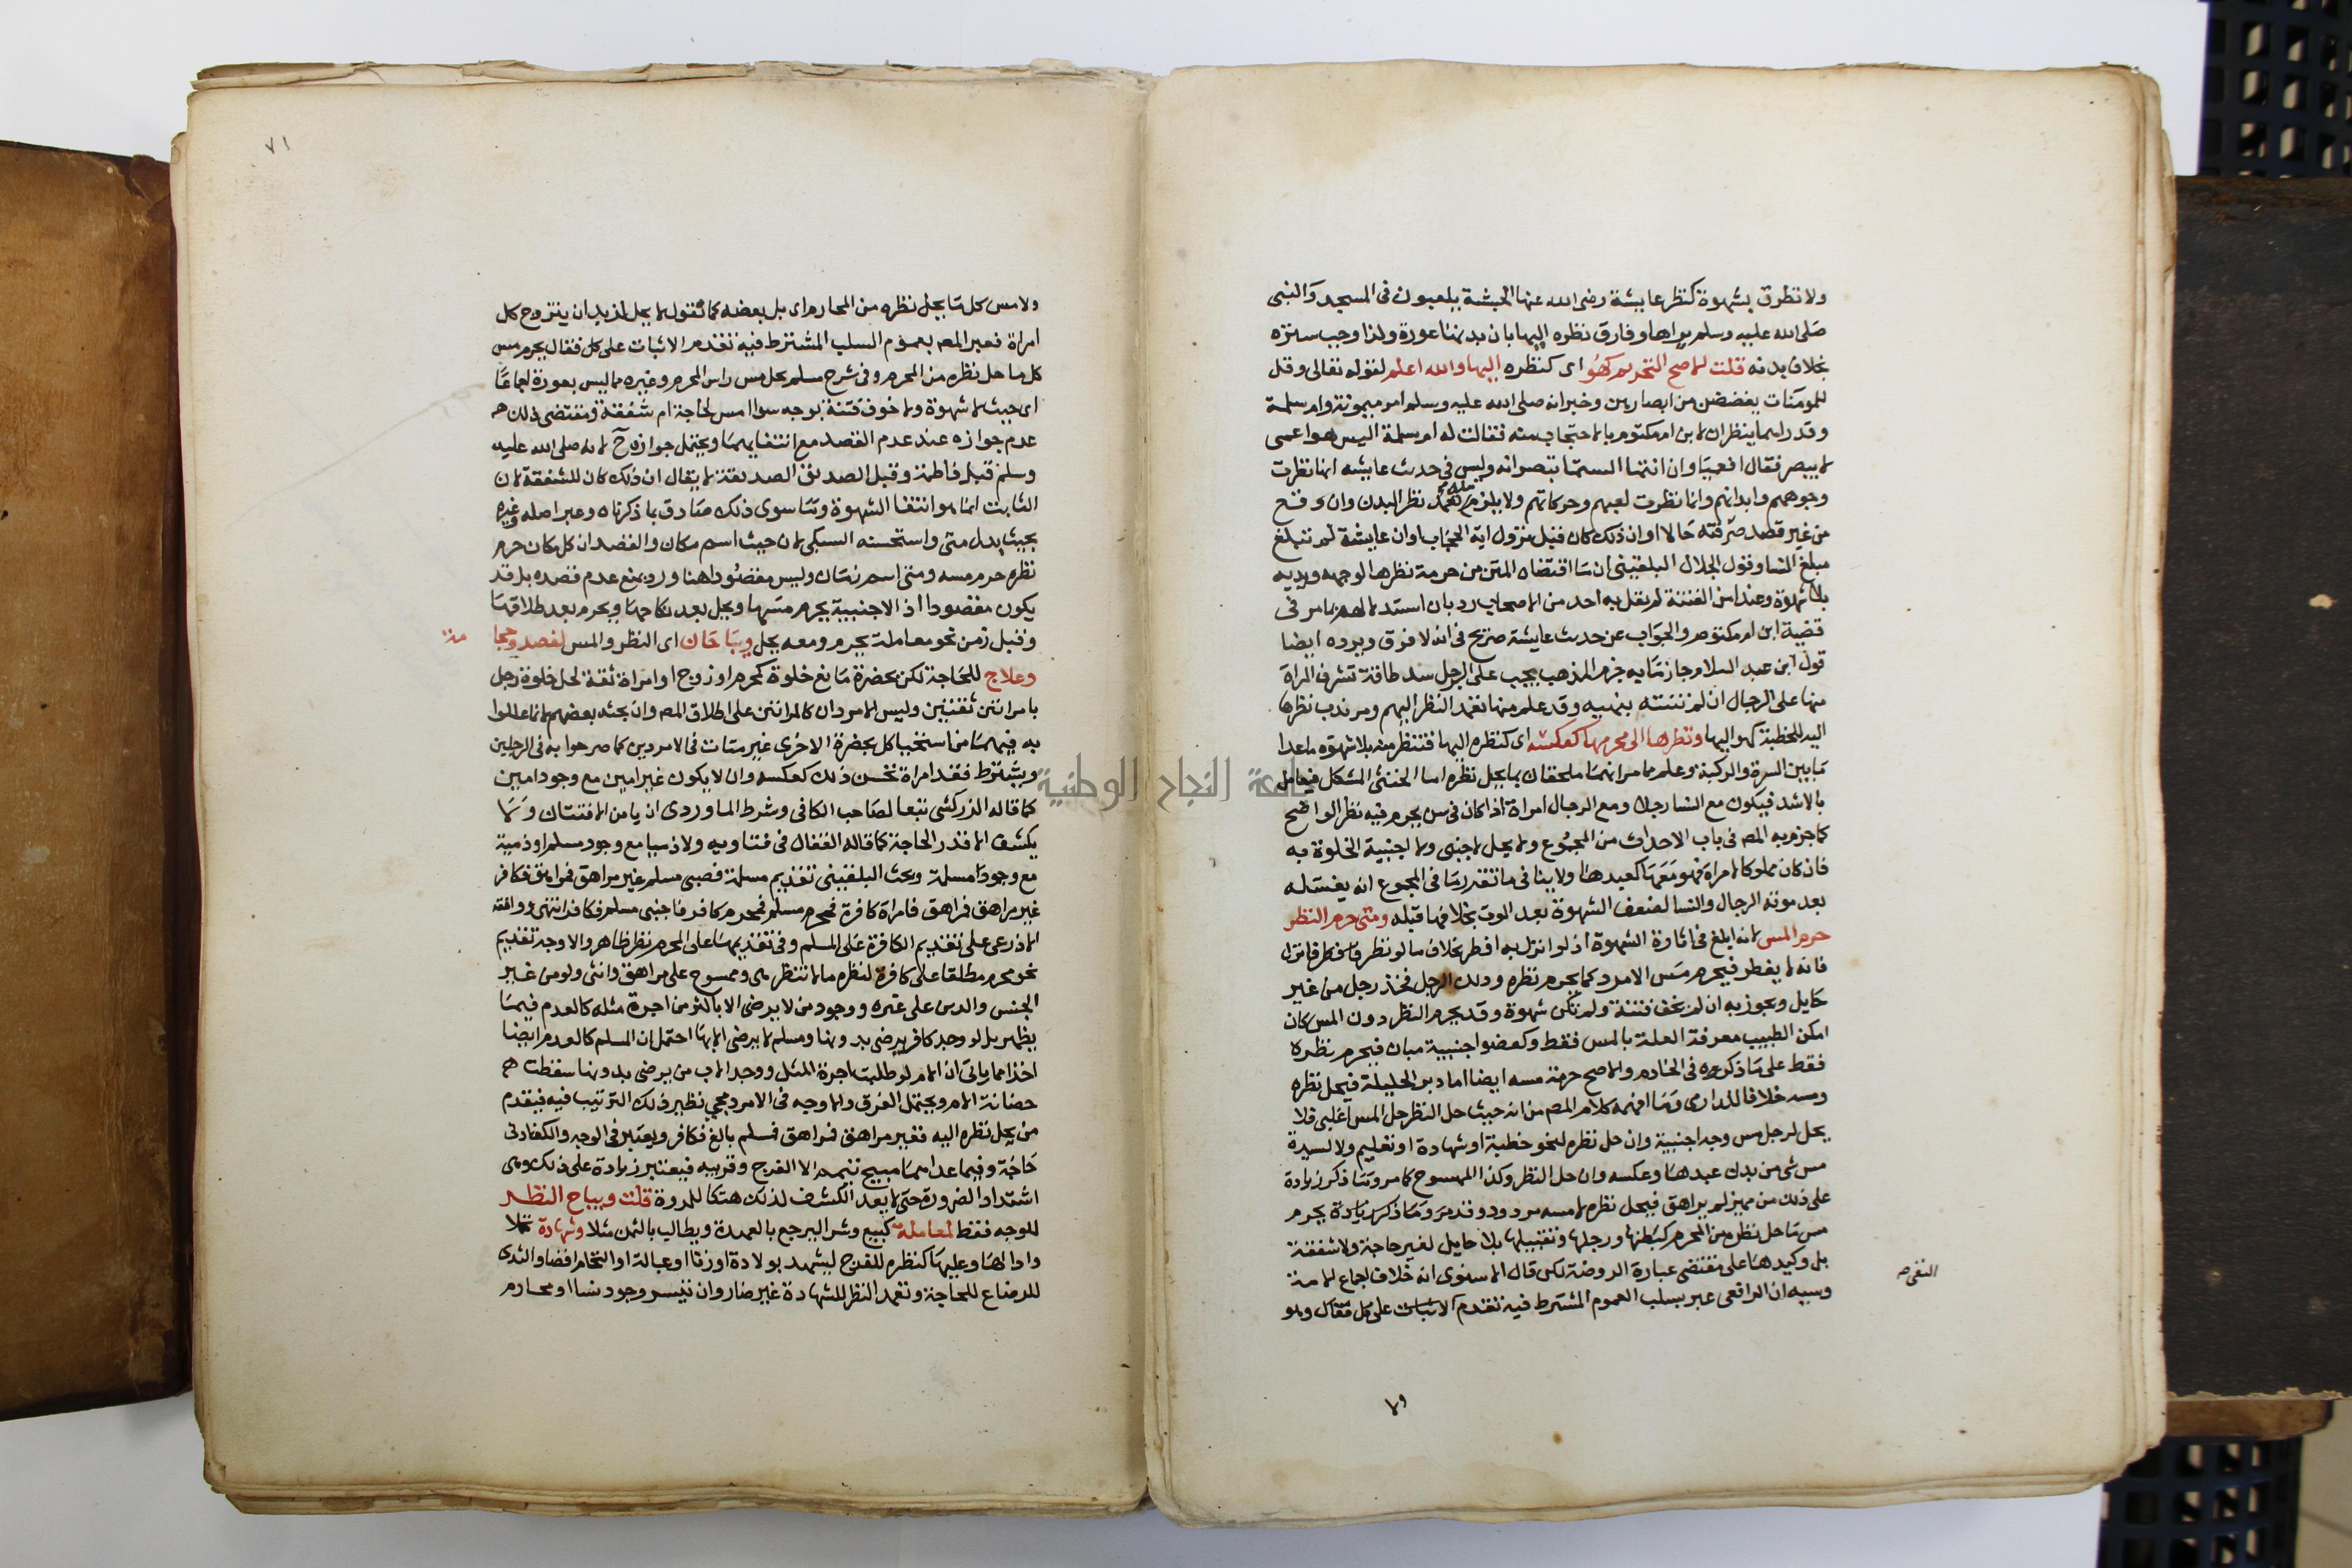 ولا نظرت بشهوة كنظر عايشة رضى الله عنها الحبشة يلعبون فى المسجد والنبى
صلى الله عليه وسلم يراها وفارق نظره اليها بان بدنها عورة ولذا وجب ستره
بخلاف بدنه قلت الاصح التحريم كهو اى كنظره اليها والله اعلم لقوله تعالى وقل
للمومنات يغضضن من ابصارهن وخبر انه صلى الله عليه وسلم امر ميمونة وام سلمة
وقد راهما ينظران لابن ام مكتوم بالاحتجاب منه فقالت له ام سلمة اليس هو اعمى
لا يبصر فقال افعميا وان انتما الستما تبصرانه وليس فى حدث عايشه انها نظرت
وجوههم وابدانهم وانما نظرت لعبهم وحركاتهم ولا يلزم منه تعمد نظر البدن وان وقع
من غير قصد صرفته حالا او ان ذلك كان قبل نزول اية الحجاب او ان عايشة لم تبلغ
مبلغ النسا وقول الجلال البلقينى ان ما اقتضاه المتن من حرمة نظرها لوجهه ويديه
بلا شهوة وعند امن الفتنة لم يقل به احد من الاصحاب رد بان استدلالهم بما مر فى
قضية ابن ام مكتوم والجواب عن حدث عايشة صريح فى انه لا فرق ويرده ايضا
قول ابن عبد السلام جازما به جزم المذهب يجب على الرجل سد طاقة تشرف المراة
منها على الرجال ان لم تنته بنهيه وقد علم منها تعمد النظر اليهم ومر ندب نظرها
اليه للخطبة كهو اليها ونظرها الى محرمها كعكسه اى كنظره اليها فتنظر منه بلا شهوة ما عدا
ما بين السرة والركبة وعلم مما مر انهما ملحقان بما يحل نظره اما الخنثى المشكل فيعامل
بالاشد فيكون مع النسا رجلا ومع الرجال امراة اذا كان فى سن يحرم فيه نظر الواضح
كما جزم به المص فى باب الاحداث من المجموع ولا يحل لاجنبى ولا اجنبية الخلوة به
فان كان مملوكا لامراة فهو معها كعبدها ولا ينافى ما تقرر ما فى المجموع انه يغسله
بعد موته الرجال والنسا لضعف الشهوة بعد الموت بخلافها قبله ومتى حرم النظر
حرم المس لانه ابلغ فى اثارة الشهوة اذ لو انزل به افطر بخلاف ما لو نظر فانزل
فانه لا يفطر فيحرم مس الامرد كما يحرم نظره ودلك الرجل فخذ رجل من غير
حايل ويجوز به ان لم يخف فتنة ولم تكن شهوة وقد يحرم النظر دون المس كان
امكن الطبيب معرفة العلة بالمس فقط وكعضو اجنبية مبان فيحرم نظره
فقط على ما ذكره فى الخادم والاصح حرمة مسه ايضا اما دبر الحليلة فيحل نظره
ومسه خلافا للدارمى وما افهمه كلام المص من انه حيث حل النظر حل المس اغلبى فلا
يحل لرجل مس وجه اجنبية وان حل نظره لنحو خطبة او شهادة او تعليم ولا لسيدة
مس شى من بدن عبدها وعكسه وان حل النظر وكذا الممسوح كما مر وما ذكر زيادة
على ذلك من مميز لم يراهق فيحل نظره لا مسه مردود وقد مر وما ذكر زيادة يحرم
مس ما حل نظره من المحرم كبطنها ورجلها وتقبيلها بلا حايل لغير حاجة ولا شفقة
بل وكيدها على مقتضى عبارة الروضة لكن قال الاسنوى انه خلاف اجماع الامة
وسببه ان الرافعى عبر بسلب العموم المشترط فيه تقدم الاثبات على كل فقال وهو
ولا
٧١
ولا مس كل ما يحل نظره من المحارم اى بل بعضه كما تقول لا يحل لزيد ان يتزوج كل
امراة فعبر المص بعموم السلب المشترط فيه تقدم الاثبات على كل فقال يحرم مس
كل ما حل نظره من المحرم وفى شرح مسلم يحل مس راس المحرم وغيره مما ليس بعورة اجماعا
اى حيث لا شهوة ولا خوف فتنة بوجه سوا امس لحاجة ام شفقة ومقتضى ذلك
عدم جوازه عند عدم القصد مع انتفايهما ويحتمل جوازه ح لانه صلى الله عليه
وسلم قبل فاطمة وقبل الصديق الصديقة لا يقال ان ذلك كان للشفقة لان
الثابت انما هو انتفا الشهوة وما سوى ذلك صادق بما ذكرناه وعبر اصله وغيره
بحيث بدل متى واستحسنه السبكى لان حيث اسم مكان والقصد ان كل مكان حرم
نظره حرم مسه ومتى اسم زمان وليس مقصودا هنا ورد بمنع عدم قصده بل قد
يكون مقصودا اذ الاجنبية يحرم مسها ويحل بعد نكاحها ويحرم بعد طلاقها
وقبل زمن نحو معاملة يحرم ومعه يحل ويباحان اى النظر والمس لفصد وحجا مة
وعلاج للحاجة لكن بحضرة مانع خلوة كمحرم او زوج او امراة ثقة لحل خلوة رجل
بامراتين ثقتين وليس الامردان كالمراتين على اطلاق المص وان بحثه بعضهم لان ما عللوا
به فيهما من استحيا كل بحضرة الاخرى غير متات فى الامردين كما صرحوا به فى الرجلين
ويشترط فقد امراة تحسن ذلك كعكسه وان لا يكون غير امين مع وجود امين
كما قاله الزركشى تبعا لصاحب الكافى وشرط الماوردى ان يامن الافتتان ولا
يكشف الا قدر الحاجة كما قاله القفال فى فتاويه ولا ذميا مع وجود مسلم او ذمية
مع وجود مسلمة وبحث البلقينى تقديم مسلمة فصبى مسلم غير مراهق فمراهق فكافر
غير مراهق فمراهق فامراة كافرة فمحرم مسلم فمحرم كافر فاجنبى مسلم فكافر انتهى ووافقه
الاذرعى على تقديم الكافرة على المسلم وفى تقديمها على المحرم نظر ظاهر والاوجه تقديم
نحو محرم مطلقا على كافرة لنظره ما لا تنظر هى وممسوح على مراهق وانثى ولو من غير
الجنس والدين على غيره ووجود من لا يرضى الا باكثر من اجرة مثله كالعدم فيما
يظهر بل لو وجد كافر يرضى بدونها ومسلم لا يرضى الا بها احتمل ان المسلم كالعدم ايضا
اخذا مما ياتى ان الام لو طلبت اجرة المثل ووجد الاب من يرضى بدونها سقطت
حضانة الام ويحتمل الفرق والاوجه فى الامرد مجى نظير ذلك الترتيب فيه فيقدم
من يحل نظره اليه فغير مراهق فمراهق فمسلم بالغ فكافر ويعتبر فى الوجه والكف ادنى
حاجة وفيما عداهما مبيح تيمم الا الفرج وقريبه فيعتبر زيادة على ذلك وهى
اشتداد الضرورة حتى لا يعد الكشف لذلك هتكا للمروة قلت ويباح النظر
للوجه فقط لمعاملة كبيع وشرا ليرجع بالعهدة ويطالب بالثمن مثلا وشهادة تحملا
وادا لها وعليها كنظره للفرج ليشهد بولادة او زنا او عبالة او التحام افضا والثدى
للرضاع للحاجة وتعمد النظر للشهادة غير ضار وان تيسر وجود نسا او محارم